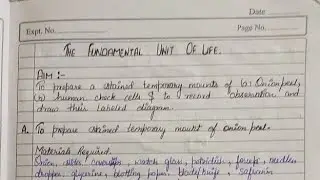 Date
Expt. No.
Page No.
THE FUNDAMENTAL UNIT OF LIFE.
AIM :-
To prepare a stained temporary mounts of (a) Onion peel,
(b) human cheek cells & to record observation and
draw their labeled diagram.
A. To prepare stained temporary mount of onion peel.
Materials Required.
Onion, watch glass, petridish, forceps, needles
dropper, glycerine, blotting paper, blade/knife, safranin